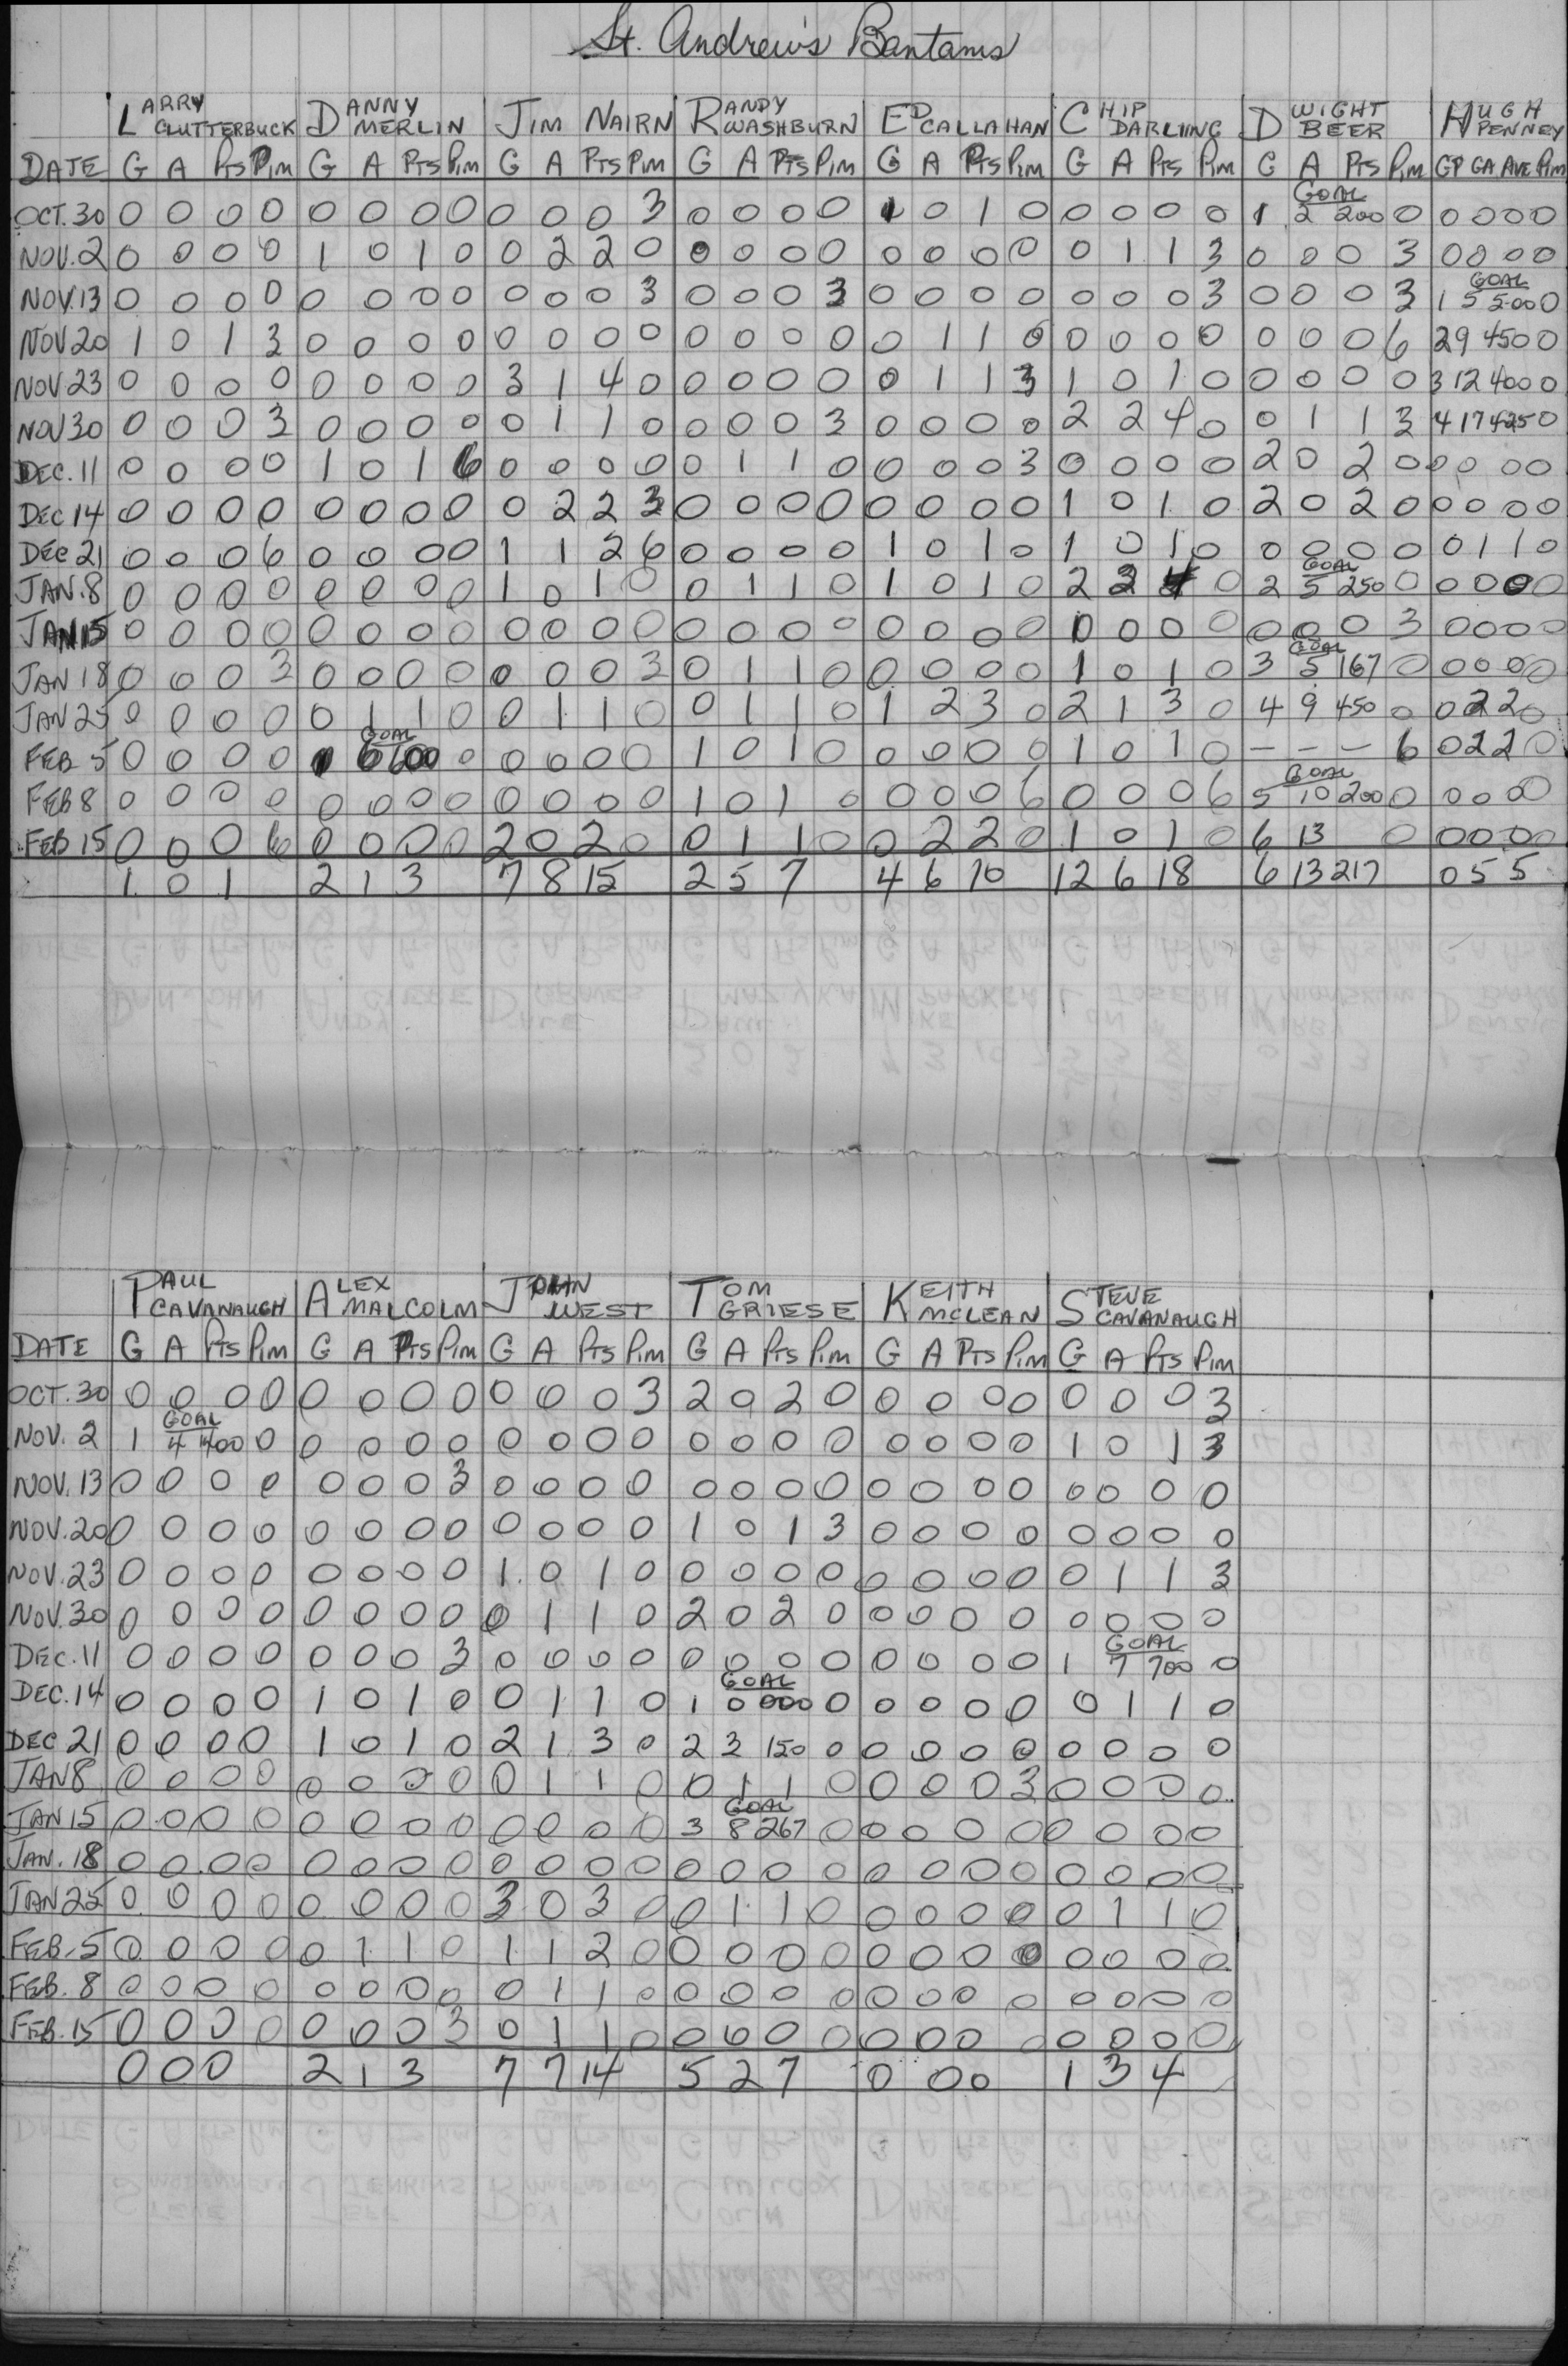 St. Andrew's Bantams
LARRY CLUTTERBUCK DANNY MERLIN JIM NAIRN RANDY WASHBURN ED CALLAHAN CHIP DARLING DWIGHT BEER HUGH PENNEY
DATE G A PTS PIM G A PTS PIM G A PTS PIM G A PTS PIM G A PTS PIM G A PTS PIM G A PTS PIM GP GA AVE PIM
GOAL
OCT. 30 0 0 0 0 0 0 0 0 0 0 0 3 0 0 0 0 1 0 1 0 0 0 0 0 1 2 200 0 0 0 0 0
NOV. 2 0 0 0 0 1 0 1 0 0 2 2 0 0 0 0 0 0 0 0 0 0 1 1 3 0 0 0 3 0 0 0 0
GOAL
NOV. 13 0 0 0 0 0 0 0 0 0 0 0 3 0 0 0 3 0 0 0 0 0 0 0 3 0 0 0 3 1 5 5.00 0
NOV 20 1 0 1 3 0 0 0 0 0 0 0 0 0 0 0 0 0 1 1 0 0 0 0 0 0 0 0 6 2 9 450 0
NOV 23 0 0 0 0 0 0 0 0 3 1 4 0 0 0 0 0 0 1 1 3 1 0 1 0 0 0 0 0 3 12 400 0
NOV 30 0 0 0 3 0 0 0 0 0 1 1 0 0 0 0 3 0 0 0 0 2 2 4 0 0 1 1 3 4 17 425 0
DEC. 11 0 0 0 0 1 0 1 6 0 0 0 0 0 1 1 0 0 0 0 3 0 0 0 0 2 0 2 0 0 0 0 0
DEC 14 0 0 0 0 0 0 0 0 0 2 2 3 0 0 0 0 0 0 0 0 1 0 1 0 2 0 2 0 0 0 0 0
DEC 21 0 0 0 6 0 0 0 0 1 1 2 6 0 0 0 0 1 0 1 0 1 0 1 0 0 0 0 0 0 1 1 0
GOAL
JAN. 8 0 0 0 0 0 0 0 0 1 0 1 0 0 1 1 0 1 0 1 0 2 2 4 0 2 5 250 0 0 0 0 0
JAN 15 0 0 0 0 0 0 0 0 0 0 0 0 0 0 0 0 0 0 0 0 0 0 0 0 0 0 0 3 0 0 0 0
GOAL
JAN 18 0 0 0 3 0 0 0 0 0 0 0 3 0 1 1 0 0 0 0 0 1 0 1 0 3 5 167 0 0 0 0 0
JAN 25 0 0 0 0 0 1 1 0 0 1 1 0 0 1 1 0 1 2 3 0 2 1 3 0 4 9 450 0 0 2 2 0
GOAL
FEB 5 0 0 0 0 1 6 600 0 0 0 0 0 1 0 1 0 0 0 0 0 1 0 1 0 – – – 6 0 2 2 0
GOAL
FEB 8 0 0 0 0 0 0 0 0 0 0 0 0 1 0 1 0 0 0 0 6 0 0 0 6 5 10 200 0 0 0 0 0
FEB 15 0 0 0 6 0 0 0 0 2 0 2 0 0 1 1 0 0 2 2 0 1 0 1 0 6 13 0 0 0 0 0
1 0 1 2 1 3 7 8 15 2 5 7 4 6 10 12 6 18 6 13 217 0 5 5
PAUL CAVANAUGH ALEX MALCOLM JOHN WEST TOM GRIESE KEITH MCLEAN STEVE CAVANAUGH
DATE G A PTS PIM G A PTS PIM G A PTS PIM G A PTS PIM G A PTS PIM G A PTS PIM
OCT. 30 0 0 0 0 0 0 0 0 0 0 0 3 2 0 2 0 0 0 0 0 0 0 0 3
GOAL
NOV. 2 1 4 400 0 0 0 0 0 0 0 0 0 0 0 0 0 0 0 0 0 1 0 1 3
NOV. 13 0 0 0 0 0 0 0 3 0 0 0 0 0 0 0 0 0 0 0 0 0 0 0 0
NOV. 20 0 0 0 0 0 0 0 0 0 0 0 0 1 0 1 3 0 0 0 0 0 0 0 0
NOV. 23 0 0 0 0 0 0 0 0 1 0 1 0 0 0 0 0 0 0 0 0 0 1 1 3
NOV. 30 0 0 0 0 0 0 0 0 0 1 1 0 2 0 2 0 0 0 0 0 0 0 0 0
GOAL
DEC. 11 0 0 0 0 0 0 0 3 0 0 0 0 0 0 0 0 0 0 0 0 1 7 700 0
GOAL
DEC. 14 0 0 0 0 1 0 1 0 0 1 1 0 1 0 000 0 0 0 0 0 0 1 1 0
DEC 21 0 0 0 0 1 0 1 0 2 1 3 0 2 3 150 0 0 0 0 0 0 0 0 0
JAN 8 0 0 0 0 0 0 0 0 0 1 1 0 0 1 1 0 0 0 0 3 0 0 0 0
GOAL
JAN 15 0 0 0 0 0 0 0 0 0 0 0 0 3 8 267 0 0 0 0 0 0 0 0 0
JAN. 18 0 0 0 0 0 0 0 0 0 0 0 0 0 0 0 0 0 0 0 0 0 0 0 0
JAN 25 0 0 0 0 0 0 0 0 3 0 3 0 0 1 1 0 0 0 0 0 0 1 1 0
FEB. 5 0 0 0 0 0 1 1 0 1 1 2 0 0 0 0 0 0 0 0 0 0 0 0 0
FEB. 8 0 0 0 0 0 0 0 0 0 1 1 0 0 0 0 0 0 0 0 0 0 0 0 0
FEB. 15 0 0 0 0 0 0 0 3 0 1 1 0 0 0 0 0 0 0 0 0 0 0 0 0
0 0 0 2 1 3 7 7 14 5 2 7 0 0 0 1 3 4